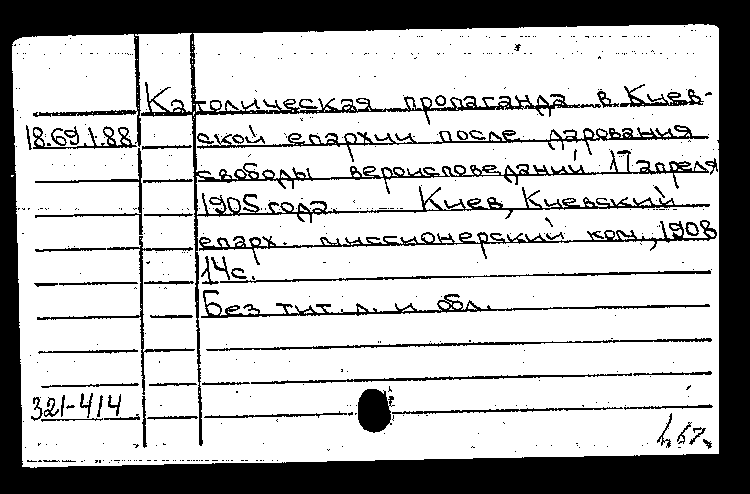 Католическая пропаганда в Киев-
18.69.1.88 ской епархии после дарования
свободы вероисповеданий 17 апреля
1905 года. Киев, Киевский
епарх. миссионерский ком., 1908
14с.
Без тит. л. и обл.
321-414